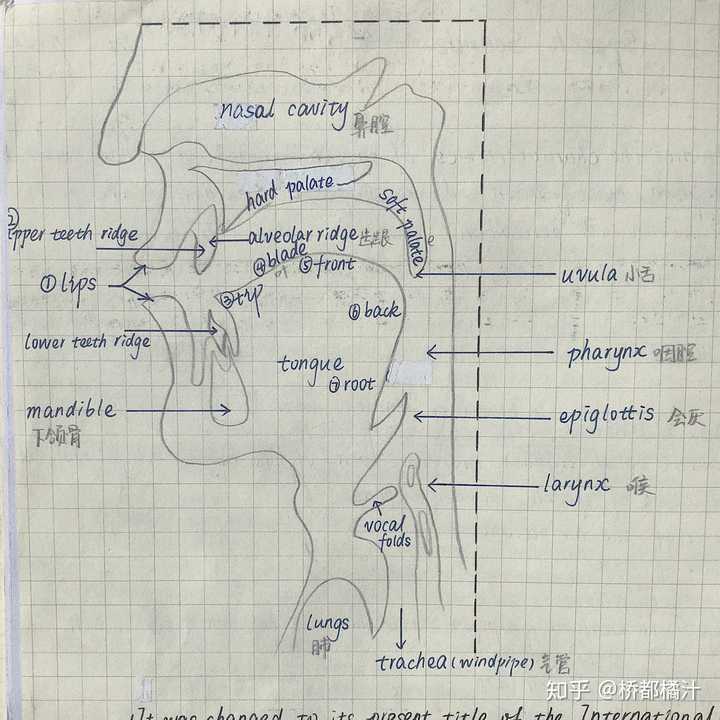 nasal cavity 鼻腔
hard palate
soft palate
②
upper teeth ridge
alveolar ridge 齿龈
④blade
叶
⑤front
①lips
③tip
uvula 小舌
⑥back
lower teeth ridge
tongue
⑦root
pharynx 咽腔
mandible
下颌骨
epiglottis 会厌
larynx 喉
vocal
folds
lungs
肺
trachea(windpipe) 气管
知乎 @桥都橘汁
It was changed to its present title of the International